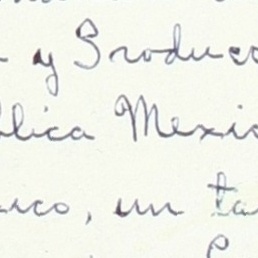 y Produc
blica Mexic
co, un ta